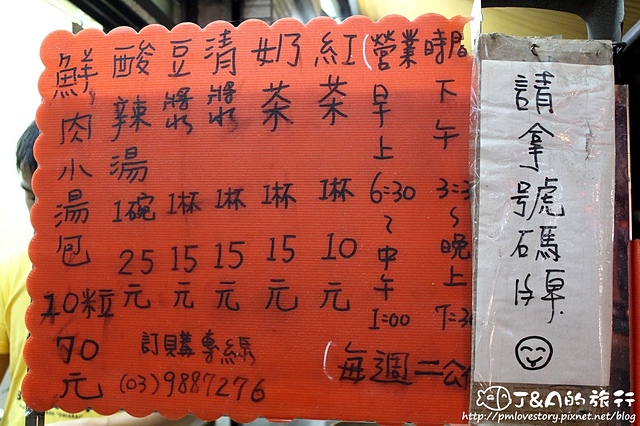 鮮肉小湯包10粒70元
酸辣湯1碗25元
豆漿1杯15元
清漿1杯15元
奶茶1杯15元
紅茶1杯10元
(營業時間
早上6:30~中午1:00
下午3:3~晚上7:3
(每週二公
訂購專線
(03)9887276
請拿號碼牌
J&A的旅行
http://pmlovestory.pixnet.net/blog